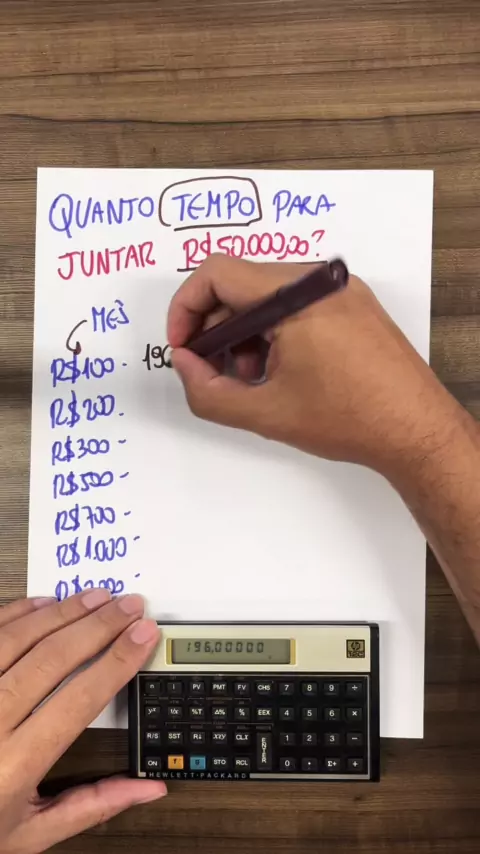 QUANTO TEMPO PARA
JUNTAR R$50.000,00?
MÊS
R$100- 196
R$200.
R$300-
R$500-
R$700-
R$1.000-
R$2.000-
196,00000
hp
n i PV PMT FV CHS 7 8 9 ÷
yˣ 1/x %T Δ% % EEX 4 5 6 ×
R/S SST R↓ x≷y CLX ENTER 1 2 3 −
ON f g STO RCL 0 . Σ+ +
HEWLETT-PACKARD